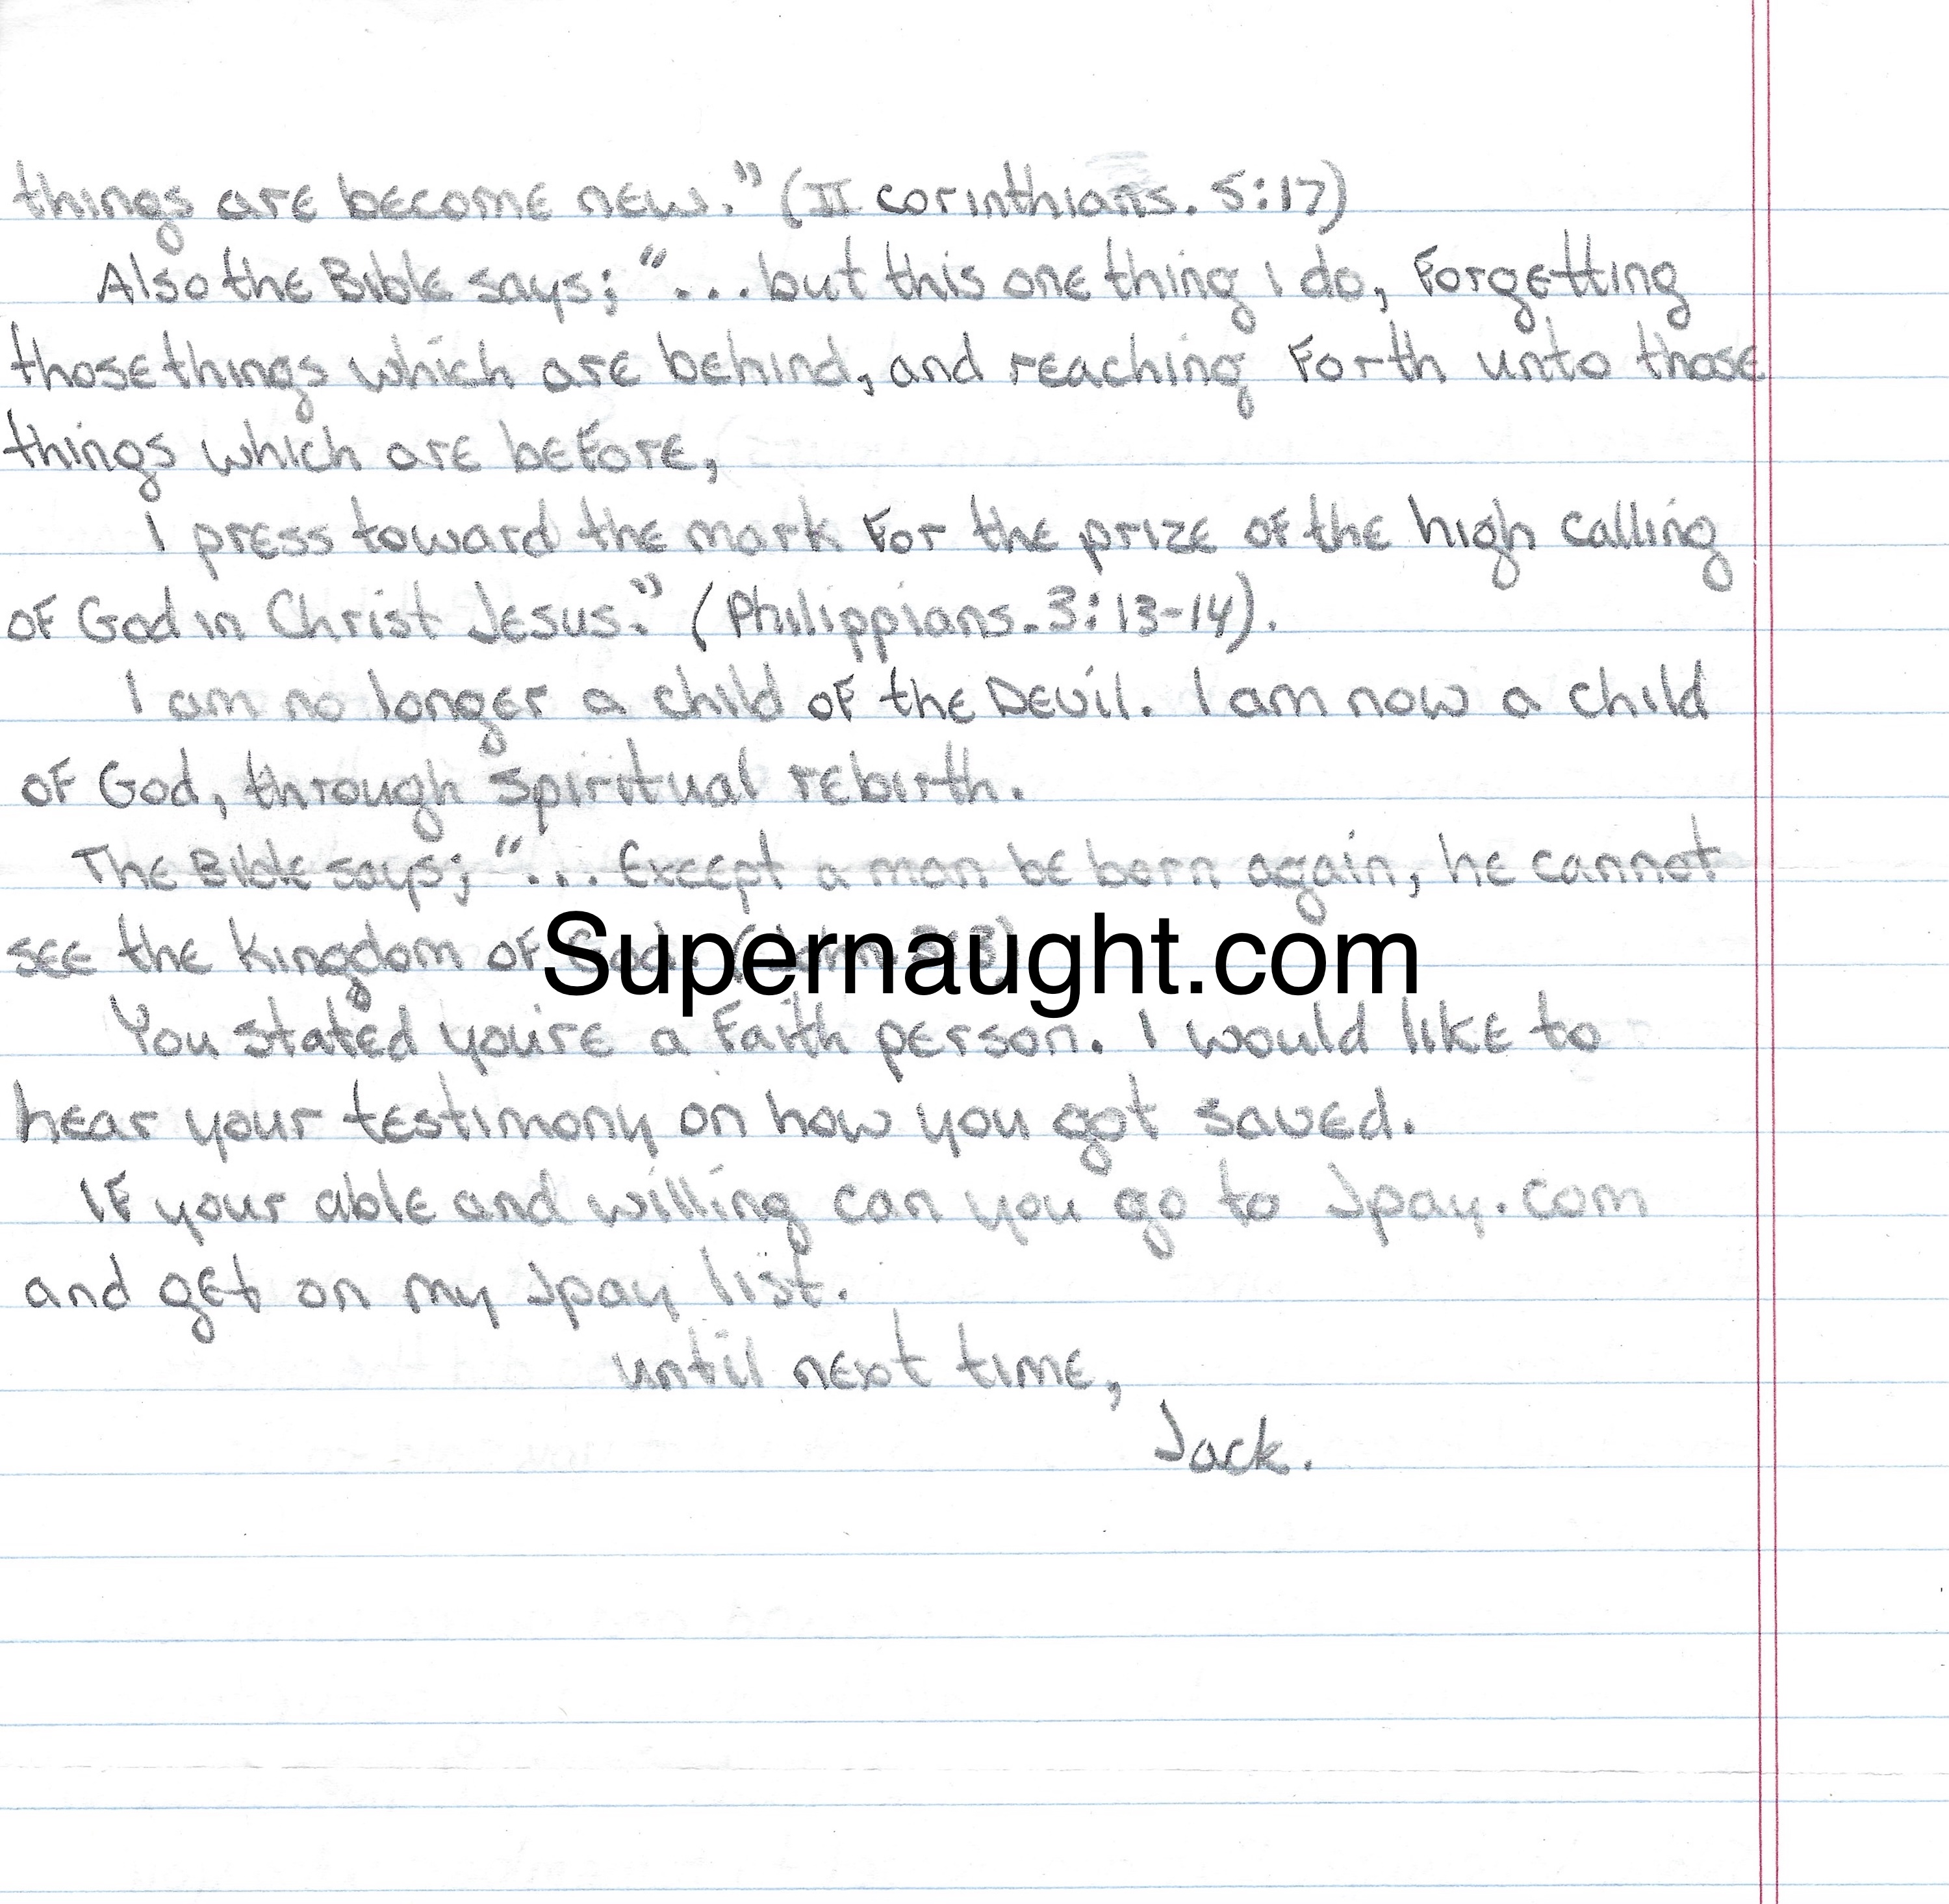 things are become new." (II corinthians. 5:17)
Also the Bible says; "...but this one thing i do, Forgetting
those things which are behind, and reaching Forth unto those
things which are before,
I press toward the mark For the prize of the high calling
of God in Christ Jesus." (Philippians. 3:13-14).
I am no longer a child of the Devil. I am now a child
of God, through spiritual rebirth.
The Bible says; "... Except a man be born again, he cannot
see the kingdom of God. (John. 3:3)
Supernaught.com
You stated you're a Faith person. I would like to
hear your testimony on how you got saved.
If your able and willing can you go to Jpay.com
and get on my Jpay list.
until next time,
Jack.